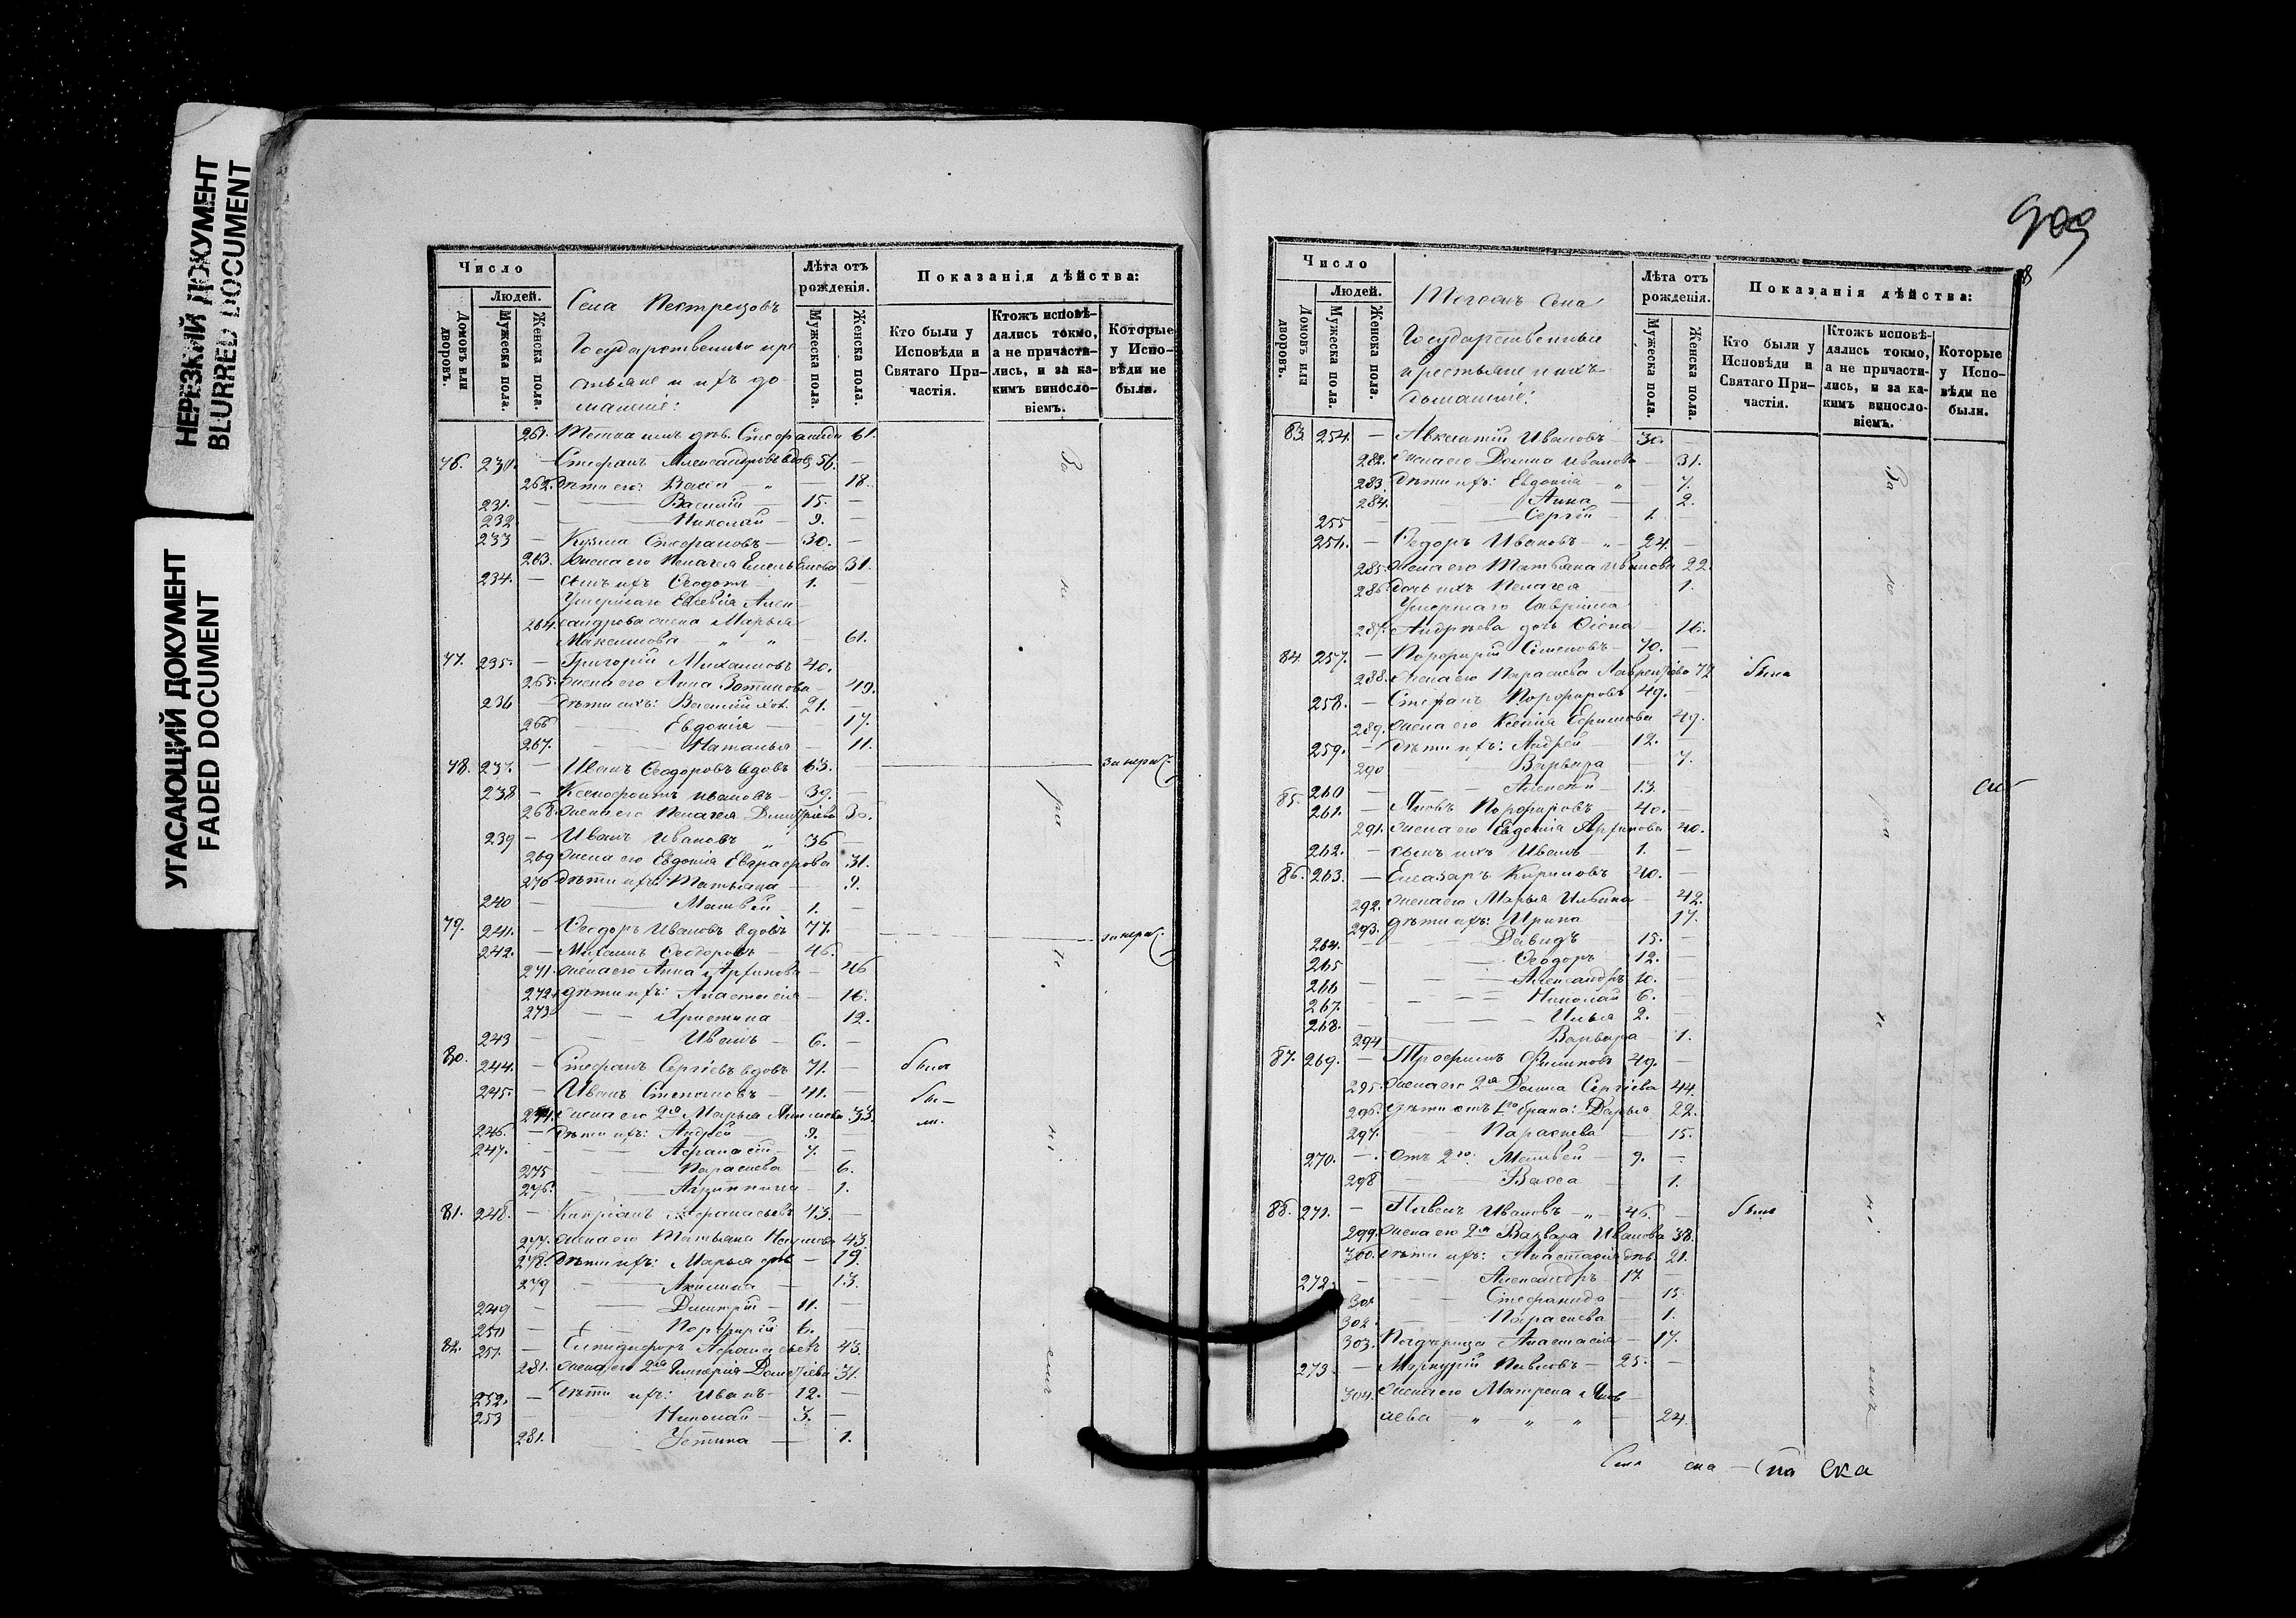 НЕРЕЗКИЙ ДОКУМЕНТ
BLURRED DOCUMENT
УГАСАЮЩИЙ ДОКУМЕНТ
FADED DOCUMENT
Число
Людей.
Домовъ или дворовъ.
Мужеска пола.
Женска пола.
Села Пестрецовъ
Государственные кре
стьяне и ихъ до
машніе:
Лѣта отъ рожденія.
Мужеска пола.
Женска пола.
Показанія дѣйства:
Кто были у Исповѣди и Святаго Причастія.
Ктожъ исповѣдались токмо, а не причастились, и за какимъ винословіемъ.
Которые у Исповѣди не были.
261. Стефанида 61.
76. 230. — Стефанъ Александровъ вдовъ 56. —
262. Дѣти его: Васса — „ — 18.
231. — Василій — 15. —
232 — Николай — 9. —
233 — Кузьма Стефановъ — 30. —
263. Жена его Пелагея Емельянова 31.
234. — Сынъ ихъ Ѳеодотъ 1. —
Умершаго Евсевія Алек-
264. сандрова жена Марья
Максимова — „ „ — 61.
77. 235. — Григорій Михаиловъ 40. —
265. Жена его Анна 49.
236 — Дѣти ихъ: Василій 21. —
266 — Евдокія — 17.
267. — Наталья — 11.
78. 237. — Иванъ Ѳеодоровъ вдовъ 63. —
238 — Ксенофонтъ Ивановъ — 39. —
268. Жена его Пелагея Дмитріева 30.
239 — Иванъ Ивановъ „ 36 —
269 Жена его Евдокія Евграфова 31.
270 Дѣти ихъ: Татьяна — 9.
240 — Матвѣй — 1. —
79. 241. — Ѳеодоръ Ивановъ вдовъ 77. —
242. — Михаилъ Ѳеодоровъ — 46. —
271. Жена его Анна 46
272. Дѣти ихъ: Анастасія — 16.
273 — Христина 12.
243 — Иванъ — 6. —
80. 244. — Стефанъ Сергіевъ вдовъ 71. — былъ
245. — Иванъ Степановъ — 41. — бы-
274. Жена его 2я Марья 33. ли.
246. — Дѣти ихъ: Андрей — 9. —
247. — Афанасій — 7. —
275 — Параскева — 6.
276. — Агриппина — 1.
81. 248. — Кипріанъ Афанасьевъ 43. —
277. Жена его Татьяна 43.
278. Дѣти ихъ: Марья — 19.
279 — Акилина — 13.
249 — Дмитрій — 11. —
250 — Порфирій 6. —
82. 251. — Елпидифоръ Афанасьевъ 43.
281. Жена его 2я 31.
252. — Дѣти ихъ: Иванъ — 12. —
253 — Николай — 3. —
281. — Устина — 1.
909
Число
Людей.
Домовъ или дворовъ.
Мужеска пола.
Женска пола.
Тогожъ села
Государственные
крестьяне и ихъ
домашніе:
Лѣта отъ рожденія.
Мужеска пола.
Женска пола.
Показанія дѣйства:
Кто были у Исповѣди и Святаго Причастія.
Ктожъ исповѣдались токмо, а не причастились, и за какимъ винословіемъ.
Которые у Исповѣди не были.
83. 254. — Авксентій Ивановъ — 30. —
282. Жена его Домна Иванова — 31.
283. Дѣти ихъ: Евдокія — „ — 7.
284. Анна — 2.
255 — Сергій — 1. —
256. — Ѳеодоръ Ивановъ — „ — 24. —
285. Жена его Татьяна Иванова 22.
286. Дочь ихъ Пелагея — 1.
Умершаго Гавріила
287. Андреева дочь 16.
84. 257. — Порфирій Семеновъ — 70. —
288. Жена его Параскева Лаврентіева 72 были
258. — Стефанъ Порфировъ 49. —
289. Жена его Ксенія 49.
259. — Дѣти ихъ: Андрей 12. —
290 — Варвара — 7.
260 — Алексѣй — 13. —
85. 261. — Яковъ Порфировъ — 40. —
291. Жена его Евдокія 40.
262. — Сынъ ихъ Иванъ — 1. —
86. 263. — Елеазаръ Кириловъ 40. —
292. Жена его Марья Ильина — 42.
293. Дѣти ихъ: Ирина 17.
264. — Давидъ — 15. —
265 — Ѳеодоръ 12. —
266 — Александръ 10. —
267. — Николай 6. —
268. — Илья 2. —
294 Варвара — 1.
87. 269. — Трофимъ Филиповъ 49. —
295. Жена его 2я Домна Сергіева 44.
296. Дѣти отъ 1го брака: Дарья 22.
297. — Параскева — 15.
270. — Отъ 2го: Матвѣй — 9. —
298 — Васса — 1.
88. 271. — Павелъ Ивановъ — „ — 46. — былъ
299. Жена его 2я Варвара Иванова 38.
300. Дѣти ихъ: Анастасія 21.
272. — Александръ 17. —
301 — Стефанида — 15.
302. — Параскева — 1.
303. Падчерица Анастасія — 17.
273. — Меркурій Павловъ — 25. —
304. Жена его Матрена Яков-
лева — „ „ „ — 24.